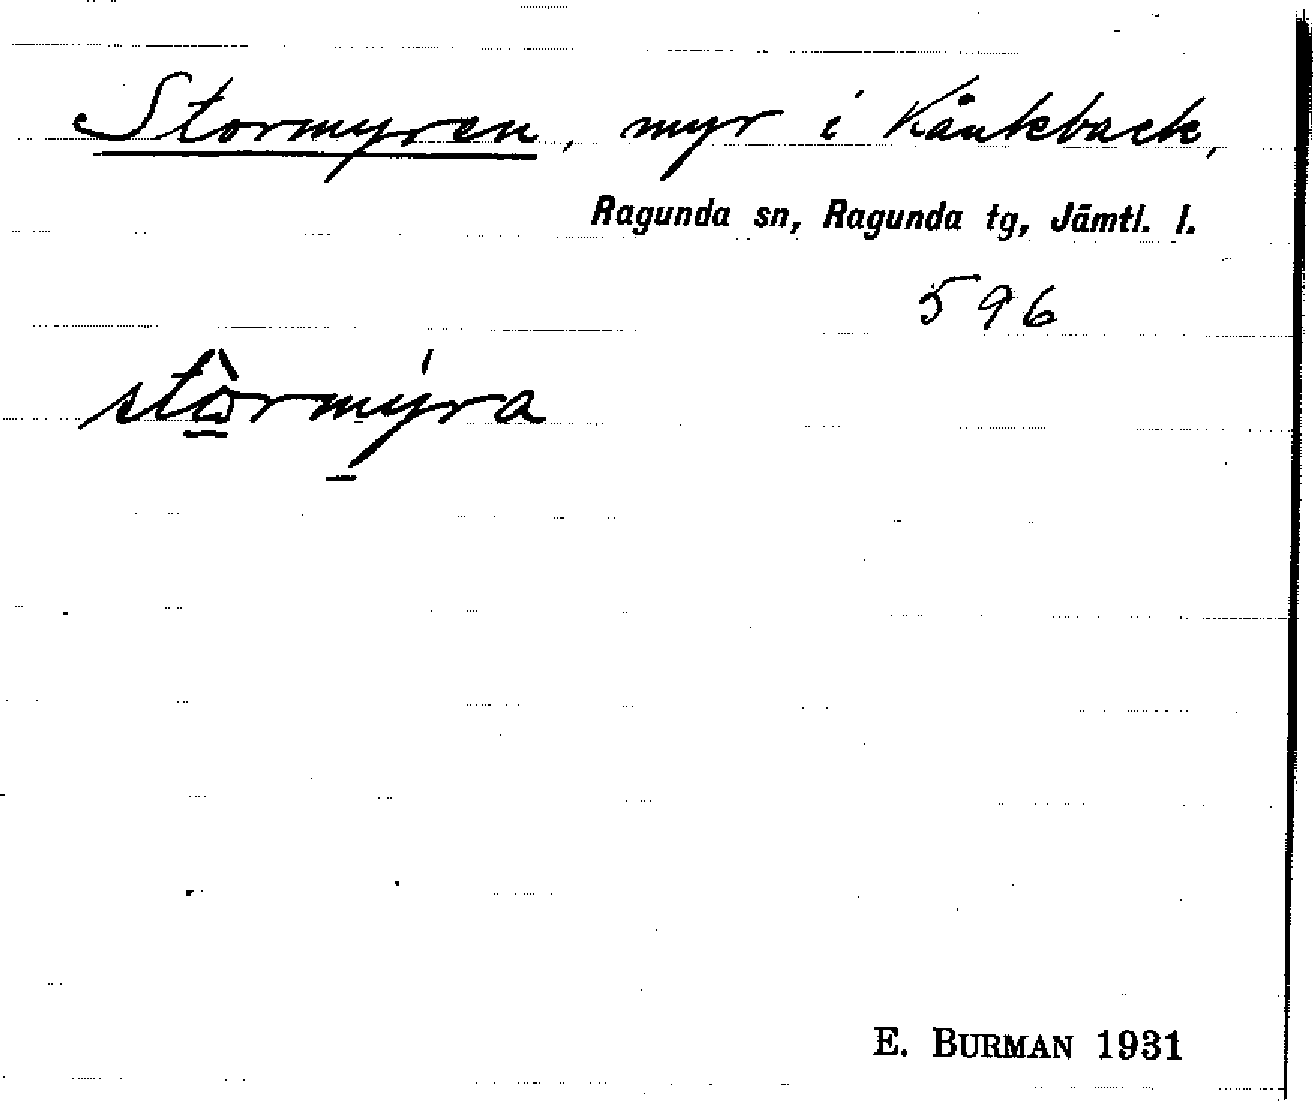 Stormyren, myr i Kånkback,
Ragunda sn, Ragunda tg, Jämtl. l.
596
stôrmýra
E. BURMAN 1931